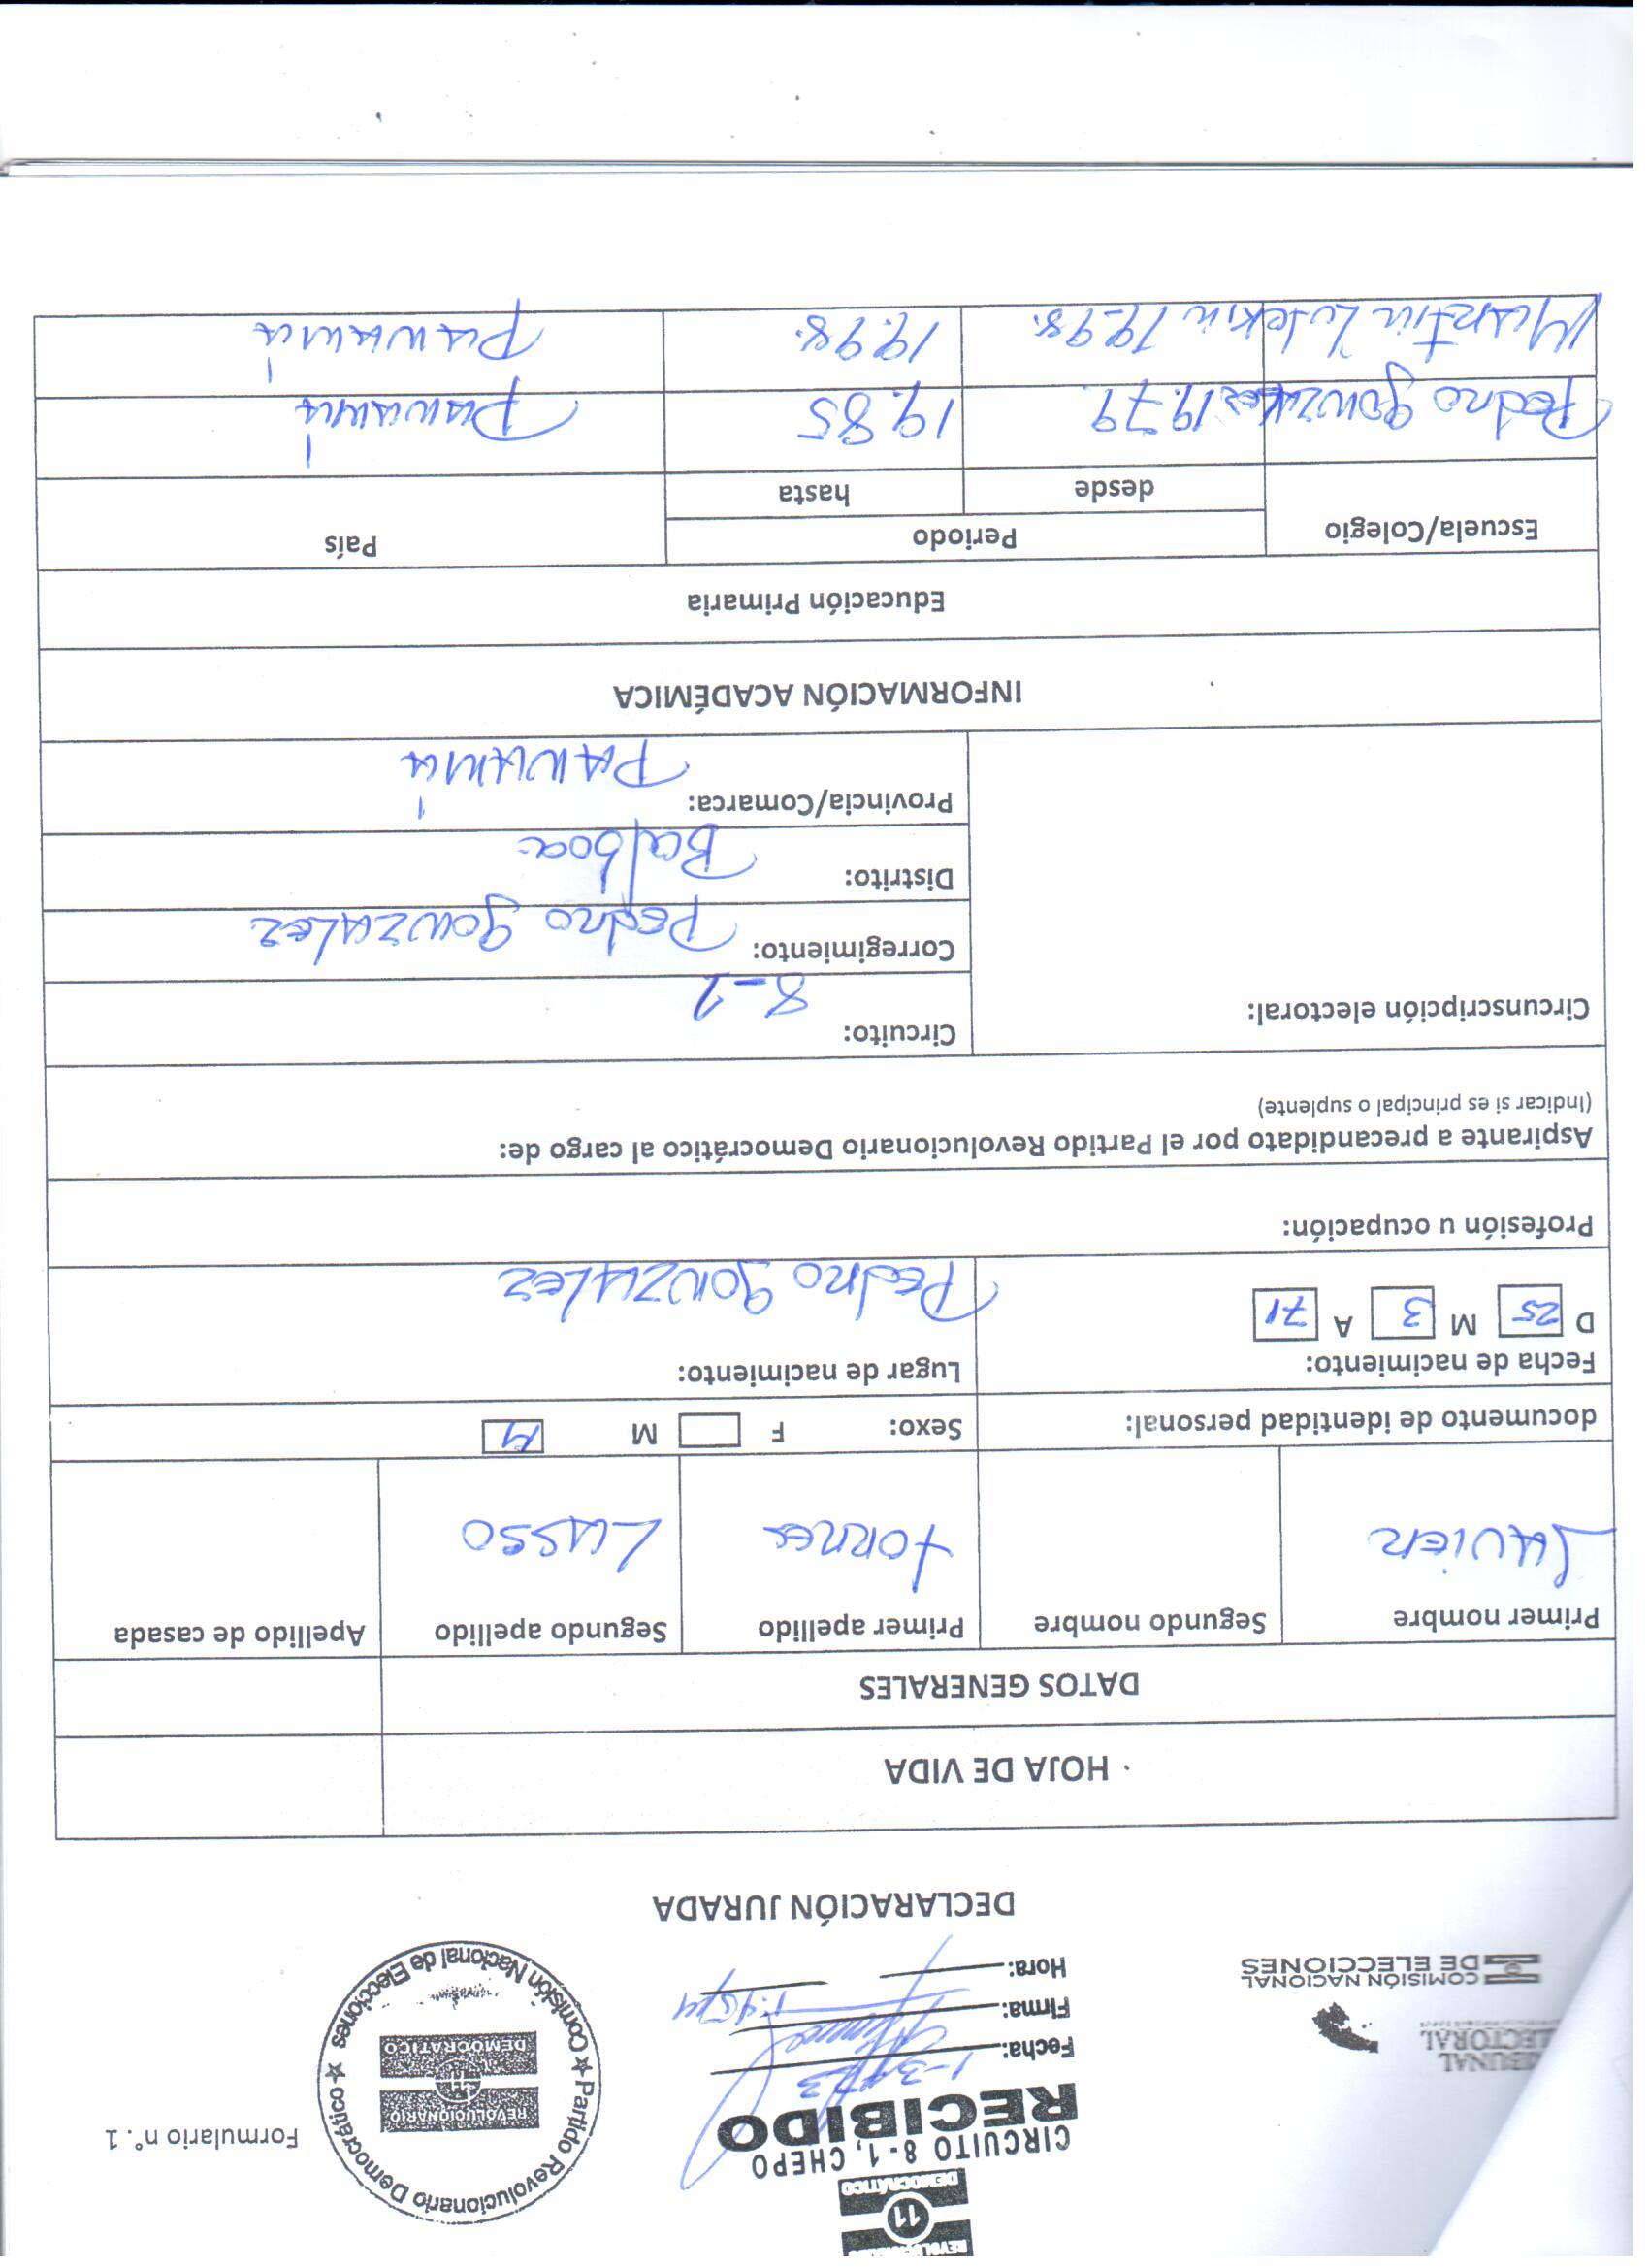 REVOLUCIONARIO
11
DEMOCRÁTICO
CIRCUITO 8-1, CHEPO
RECIBIDO
Fecha: 1-3-23
Firma:
Hora: 1:45
Formulario n°. 1
★ Partido Revolucionario Democrático ★ Comisión Nacional de Elecciones
REVOLUCIONARIO
11
DEMOCRATICO
TRIBUNAL
ELECTORAL
COMISIÓN NACIONAL
DE ELECCIONES
DECLARACIÓN JURADA
HOJA DE VIDA
DATOS GENERALES
Primer nombre Segundo nombre Primer apellido Segundo apellido Apellido de casada
JAVIER torres LASSO
documento de identidad personal: Sexo: F M M
Fecha de nacimiento: Lugar de nacimiento:
D 25 M 3 A 71 Pedro gonzalez
Profesión u ocupación:
Aspirante a precandidato por el Partido Revolucionario Democrático al cargo de:
(Indicar si es principal o suplente)
Circunscripción electoral: Circuito: 8-1
Corregimiento: Pedro gonzalez
Distrito: Balboa
Provincia/Comarca: PANAMÁ
INFORMACIÓN ACADÉMICA
Educación Primaria
Escuela/Colegio Periodo País
desde hasta
Pedro gonzalez 19.79 19.85 Panamá
Martin 19.98. 19.98. PANAMá